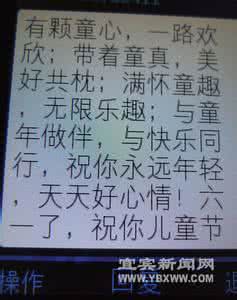 有颗童心，一路欢
欣；带着童真，美
好共枕；满怀童趣
，无限乐趣；与童
年做伴，与快乐同
行，祝你永远年轻
，天天好心情！六
一了，祝你儿童节
操作 回复
宜宾新闻网
WWW.YBXWW.COM